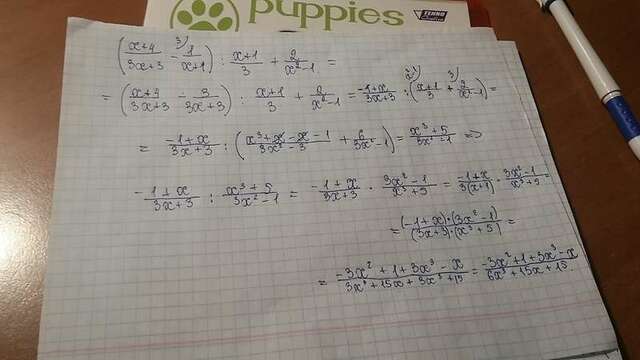 puppies
TERRO
((x+4)/(3x+3) - 3)1/(x+1)) : (x+1)/3 + 2/(x²-1) =
= ((x+4)/(3x+3) - 3/(3x+3)) : (x+1)/3 + 2/(x²-1) = (-1+x)/(3x+3) : ((x+1)/3 + 3)2/(x²-1)) =
= (-1+x)/(3x+3) : ((x³+x-x-1)/(3x²-3) + 6/(3x²-1)) = (x³+5)/(3x²-1) =>
-(1+x)/(3x+3) : (x³+5)/(3x²-1) = (-1+x)/(3x+3) · (3x²-1)/(x³+5) = (-1+x)/(3(x+1)) · (3x²-1)/(x³+5) =
= ((-1+x)·(3x²-1))/((3x+3)·(x³+5)) =
= (-3x²+1+3x³-x)/(3x⁴+15x+3x³+15) = (-3x²+1+3x³-x)/(6x³+15x+15)